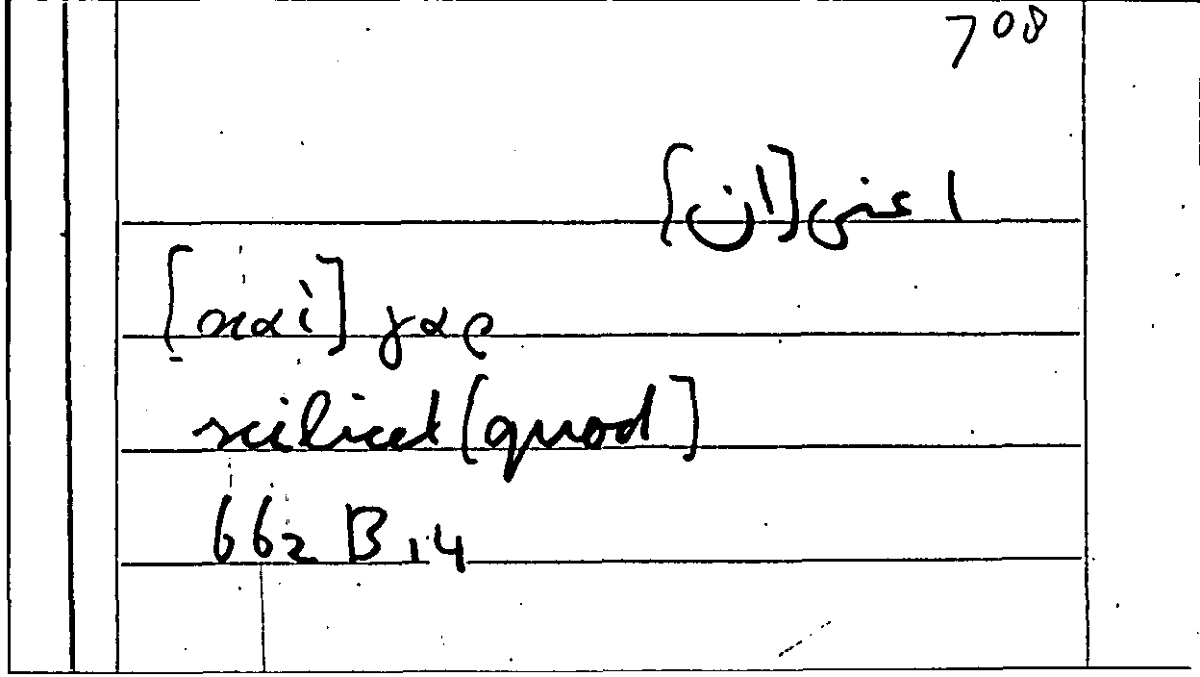 708
اعنى [ان]
[καὶ] γαρ
scilicet [quod]
662 B 14